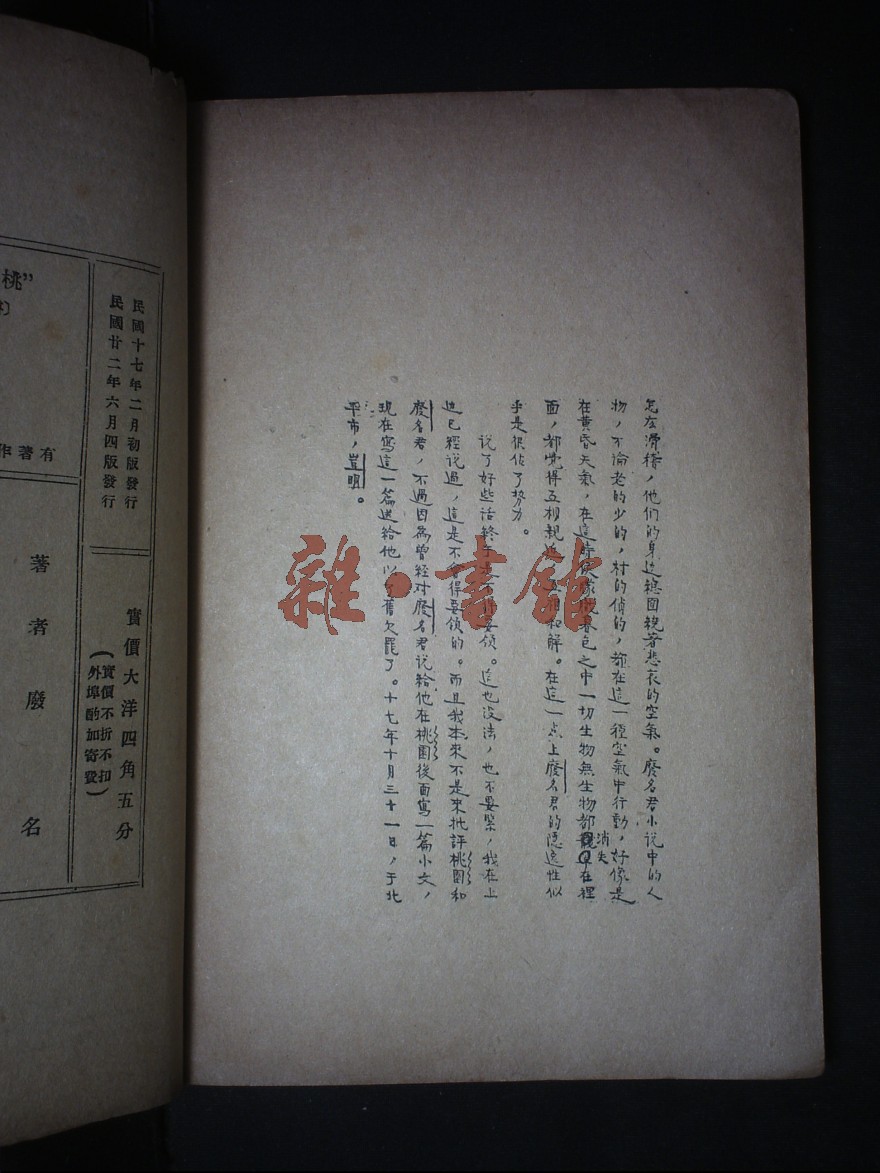 怎么滑稽，他们的身边總围繞著悲哀的空氣。廢名君小说中的人
物，不論老的少的，村的俏的，都在這一種空氣中行動，好像是
在黄昏天氣，在這時候朦朧暮色之中一切生物無生物都消失在裡
面，都觉得互相親近，互相和解。在這一点上廢名君的隐逸性似
乎是很佔了势力。
说了好些话终于是不得要领。這也没法，也不要緊，我在上
边已经说過，這是不會得要领的。而且我本來不是來批評桃園和
廢名君，不過因為曾经对廢名君说给他在桃園後面寫一篇小文，
現在寫這一篇送给他以了舊欠罷了。十七年十月三十一日，于北
平市，豈明。
雜·書館
民國十七年二月初版發行
民國廿二年六月四版發行
實價大洋四角五分
（實價不折不扣
外埠酌加寄費）
桃”
有著作
著者廢名